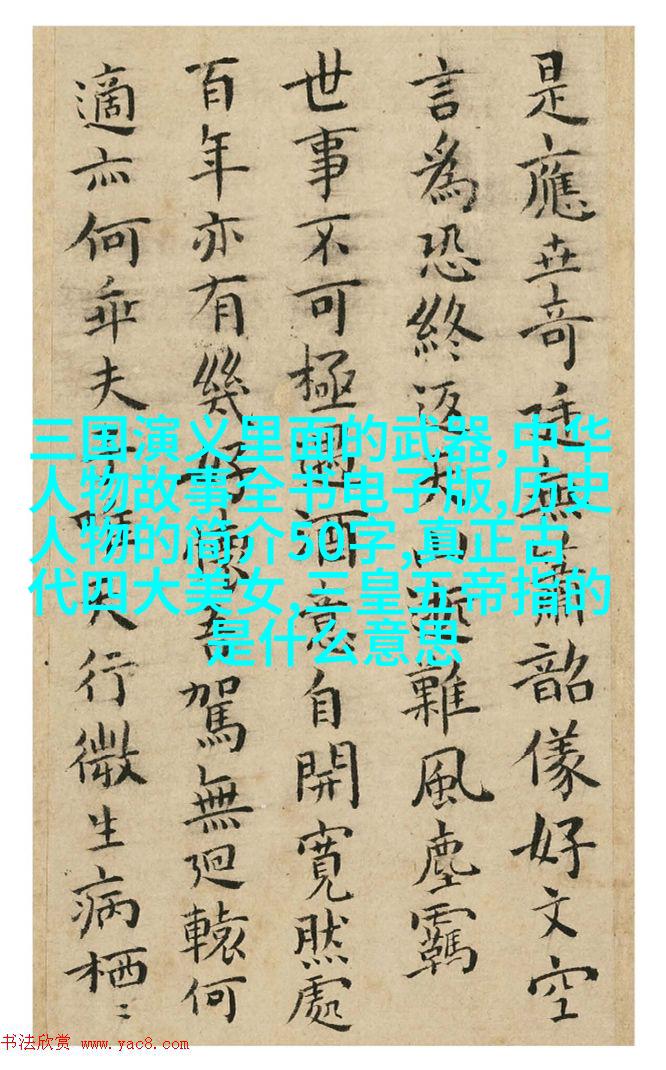 是應奇無蕭韶儀好文空
言爲恐終返難風塵羈
世事不可極酒意自開寬然處
百年亦有幾好吾駕無迴轅何
適亦何乖夫行微生病栖〻
三国演义里面的武器,中华
人物故事全书电子版,历史
人物的简介50字,真正古
代四大美女,三皇五帝指的
是什么意思
书法欣赏 www.yac8.com